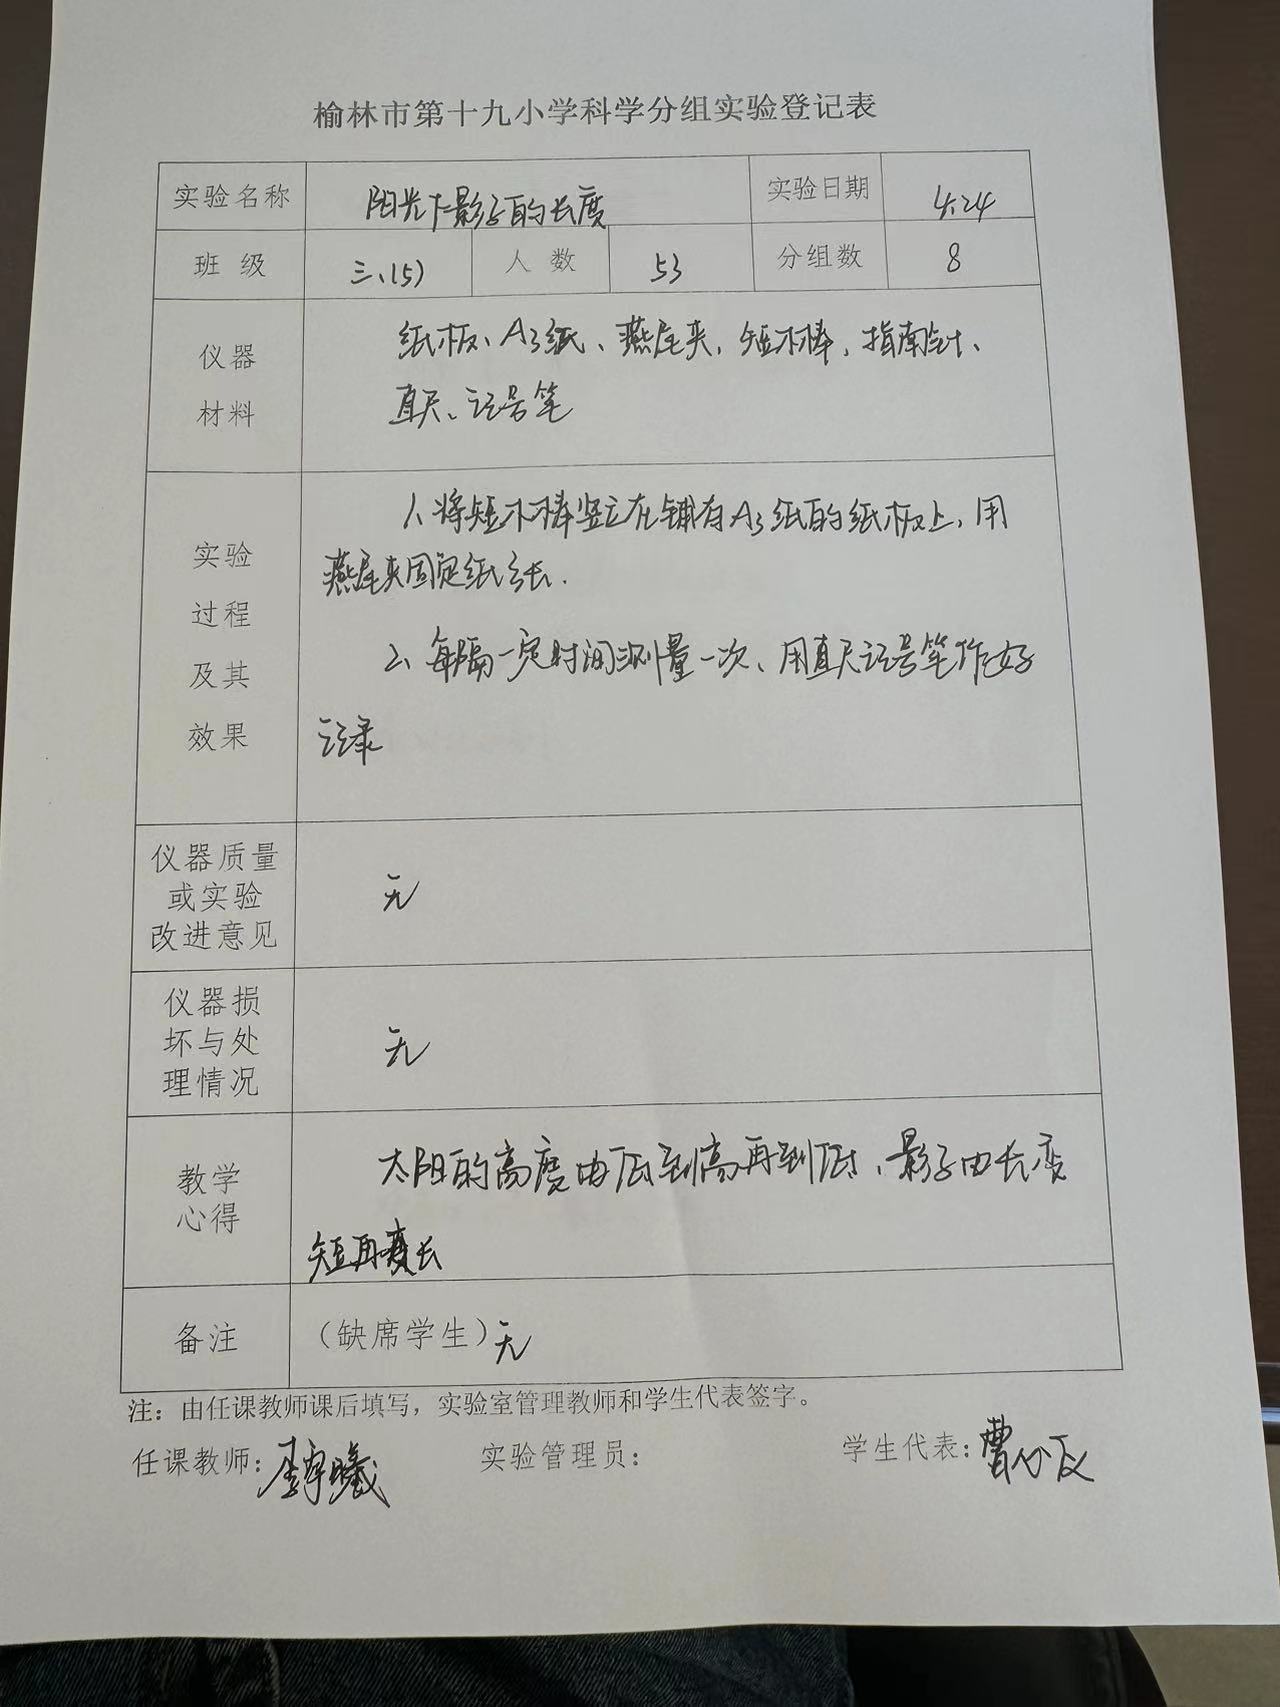 榆林市第十九小学科学分组实验登记表
实验名称 阳光下影子的长度 实验日期 4.24
班 级 三、(5) 人 数 53 分组数 8
仪器
材料
纸板、A3纸、燕尾夹、短木棒、指南针、
直尺、记号笔
实验
过程
及其
效果
1、将短木棒竖立在铺有A3纸的纸板上,用
燕尾夹固定纸张.
2、每隔一定时间测量一次、用直尺记号笔作好
记录
仪器质量
或实验
改进意见
无
仪器损
坏与处
理情况
无
教学
心得
太阳的高度由低到高再到低、影子由长变
短再变长
备注 (缺席学生)无
注：由任课教师课后填写，实验室管理教师和学生代表签字。
任课教师: 实验管理员: 学生代表: 曹